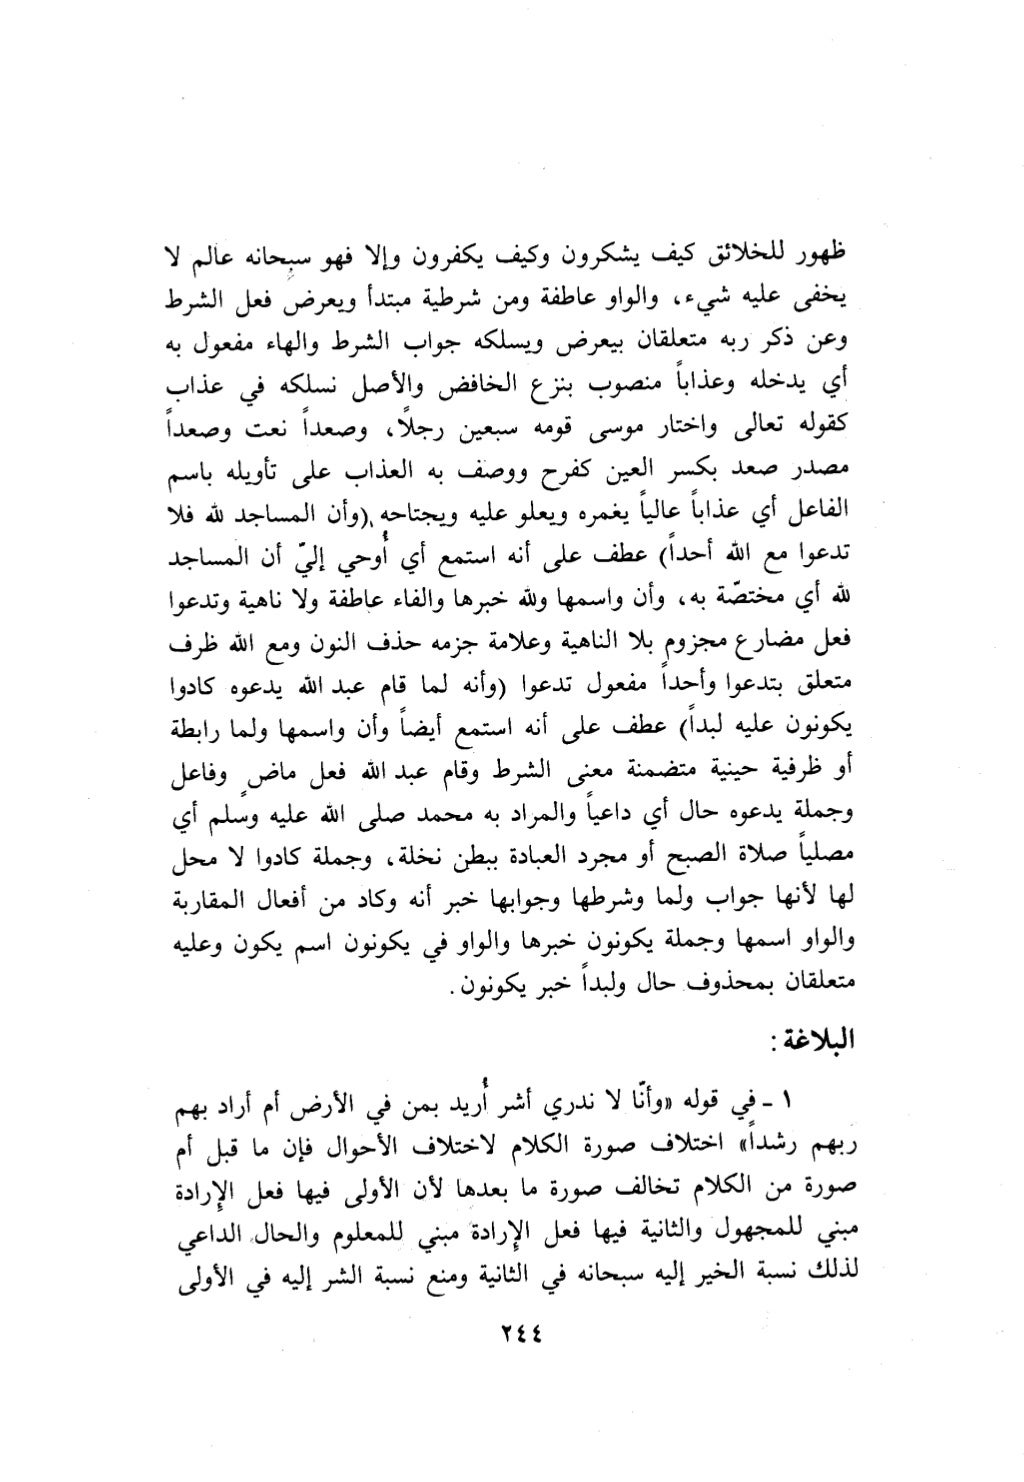 ظهور للخلائق كيف يشكرون وكيف يكفرون وإلا فهو سبحانه عالم لا
يخفى عليه شيء، والواو عاطفة ومن شرطية مبتدأ ويعرض فعل الشرط
وعن ذكر ربه متعلقان بيعرض ويسلكه جواب الشرط والهاء مفعول به
أي يدخله وعذاباً منصوب بنزع الخافض والأصل نسلكه في عذاب
كقوله تعالى واختار موسى قومه سبعين رجلاً، وصعداً نعت وصعداً
مصدر صعد بكسر العين كفرح ووصف به العذاب على تأويله باسم
الفاعل أي عذاباً عالياً يغمره ويعلو عليه ويجتاحه (وأن المساجد لله فلا
تدعوا مع الله أحداً) عطف على أنه استمع أي أُوحي إليّ أن المساجد
لله أي مختصّة به، وأن واسمها ولله خبرها والفاء عاطفة ولا ناهية وتدعوا
فعل مضارع مجزوم بلا الناهية وعلامة جزمه حذف النون ومع الله ظرف
متعلق بتدعوا وأحداً مفعول تدعوا (وأنه لما قام عبد الله يدعوه كادوا
يكونون عليه لبداً) عطف على أنه استمع أيضاً وأن واسمها ولما رابطة
أو ظرفية حينية متضمنة معنى الشرط وقام عبد الله فعل ماضٍ وفاعل
وجملة يدعوه حال أي داعياً والمراد به محمد صلى الله عليه وسلم أي
مصلياً صلاة الصبح أو مجرد العبادة ببطن نخلة، وجملة كادوا لا محل
لها لأنها جواب ولما وشرطها وجوابها خبر أنه وكاد من أفعال المقاربة
والواو اسمها وجملة يكونون خبرها والواو في يكونون اسم يكون وعليه
متعلقان بمحذوف حال ولبداً خبر يكونون.
البلاغة:
١ ـ في قوله «وأنّا لا ندري أشر أُريد بمن في الأرض أم أراد بهم
ربهم رشداً» اختلاف صورة الكلام لاختلاف الأحوال فإن ما قبل أم
صورة من الكلام تخالف صورة ما بعدها لأن الأولى فيها فعل الإرادة
مبني للمجهول والثانية فيها فعل الإرادة مبني للمعلوم والحال الداعي
لذلك نسبة الخير إليه سبحانه في الثانية ومنع نسبة الشر إليه في الأولى
٢٤٤